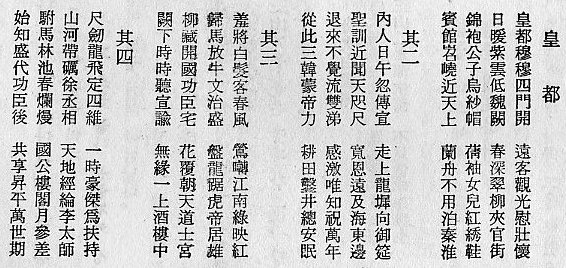 皇都
皇都穆穆四門開　遠客觀光慰壯懷
日暖紫雲低魏闕　春深翠柳夾官街
錦袍公子烏紗帽　蒨袖女兒紅綉鞋
賓館岧嶢近天上　蘭舟不用泊秦淮
其二
內人日午忽傳宣　走上龍墀向御筵
聖訓近聞天咫尺　寬恩遠及海東邊
退來不覺流雙涕　感激唯知祝萬年
從此三韓蒙帝力　耕田鑿井總安眠
其三
羞將白髮客春風　鶯囀江南綠映紅
歸馬放牛文治盛　盤龍踞虎帝居雄
柳藏開國功臣宅　花覆朝天道士宮
闕下時時聽宣諭　無緣一上酒樓中
其四
尺劒龍飛定四維　一時豪傑爲扶持
山河帶礪徐丞相　天地經綸李太師
駙馬林池春爛熳　國公樓閣月參差
始知盛代功臣後　共享昇平萬世期